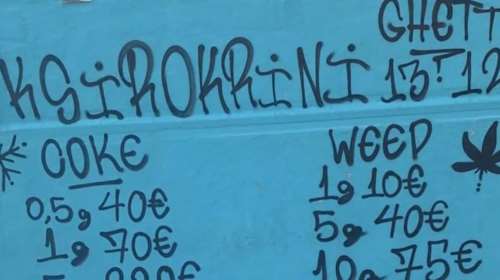 GHETT
KSIROKRINI 13:12
COKE
WEED
0,5g 40€
1g 10€
1g 70€
5g 40€
10g 75€